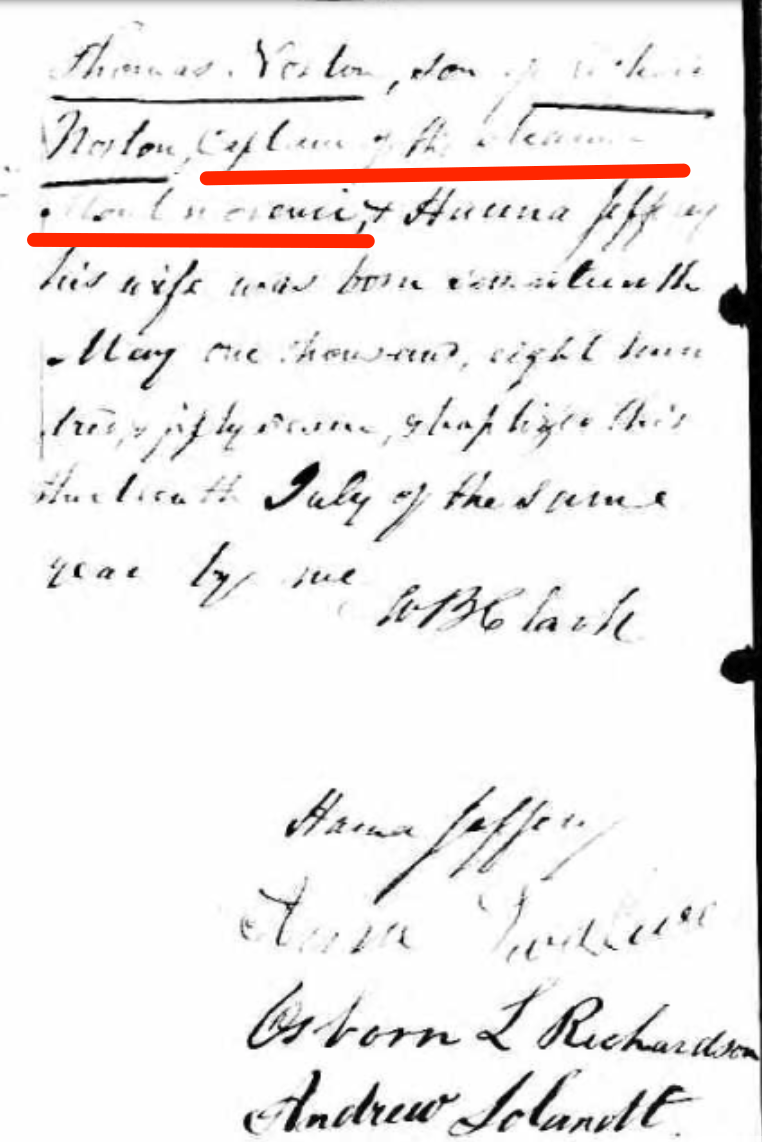 Thomas Norton, son of
Norton, Captain of the steamer
& Hanna Jeffery
his wife was born seventeenth
May one thousand, eight hun
dred, & fifty seven, & baptized this
thirteenth July of the same
year by me
W B Clark
Hanna Jeffery
Osborn L Richardson
Andrew